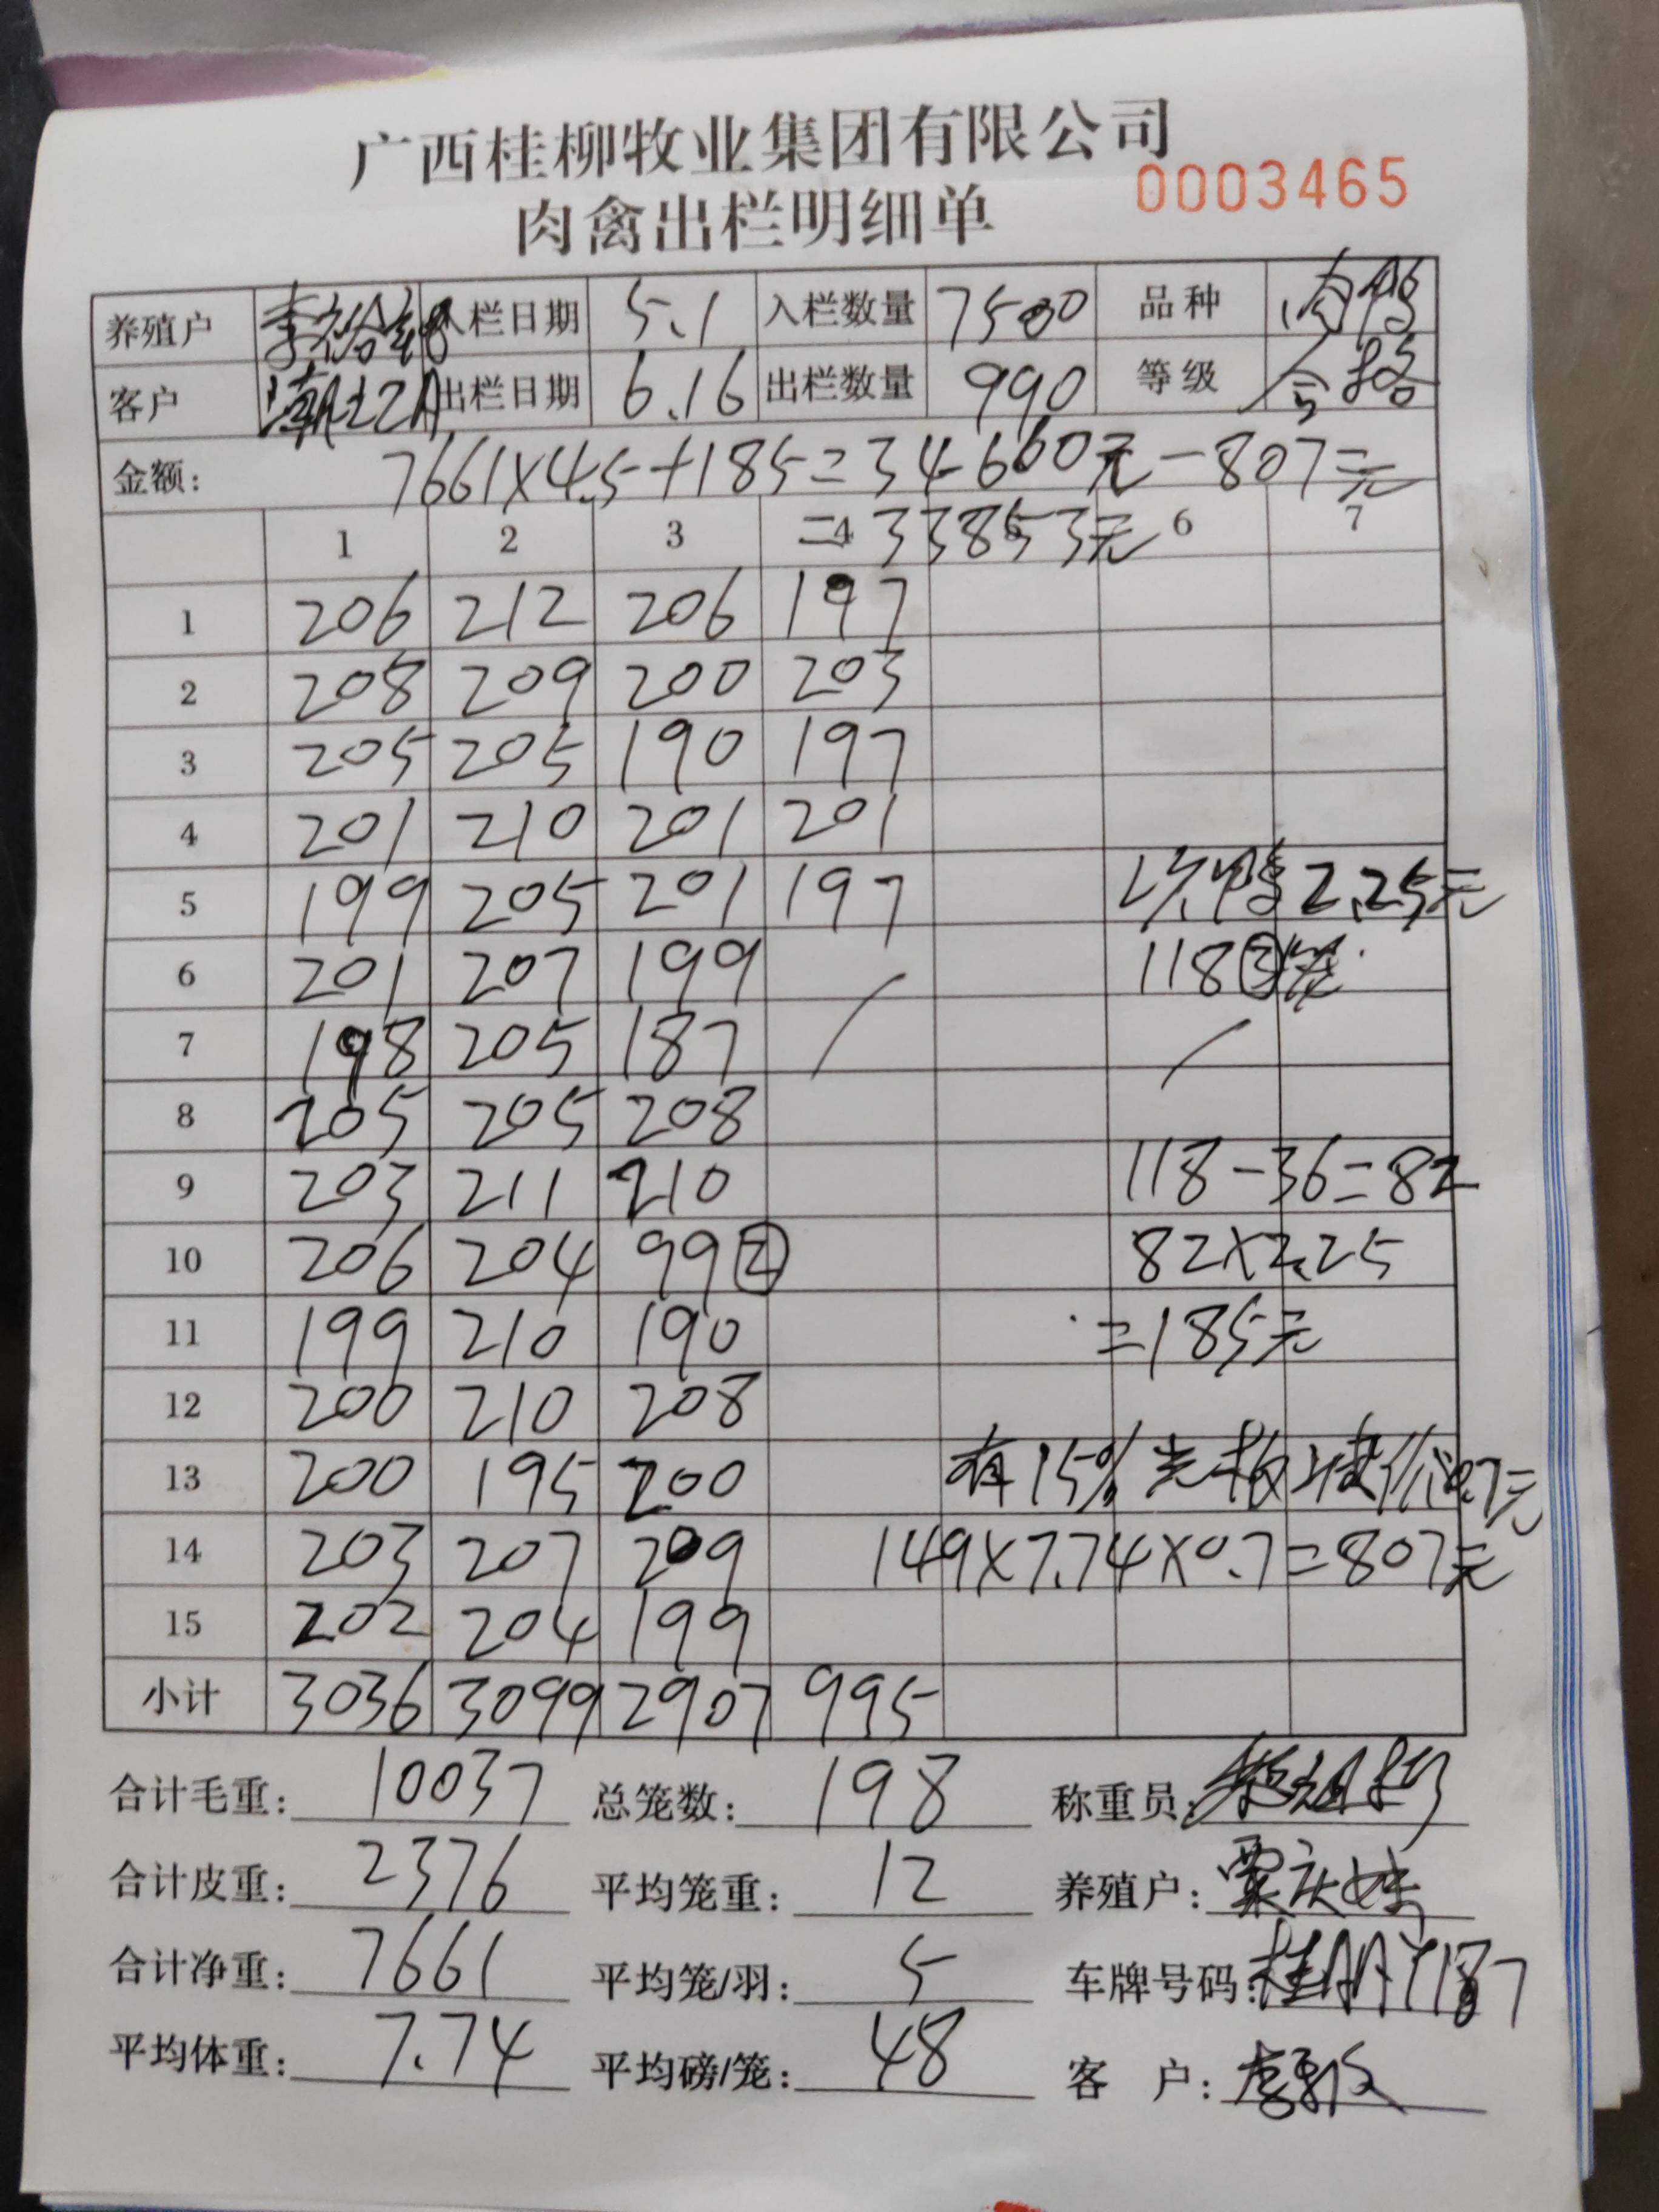 广西桂柳牧业集团有限公司
肉禽出栏明细单 0003465
养殖户 入栏日期 5.1 入栏数量 7500 品种 肉鸭
客户 出栏日期 6.16 出栏数量 990 等级 合格
金额: 7661×4.5+185=34660元-807元
=33853元
1 2 3 4 6 7
1 206 212 206 197
2 208 209 200 203
3 205 205 190 197
4 201 210 201 201
5 199 205 201 197 鸭2.25元
6 201 207 199 118③笼
7 198 205 187
8 205 205 208
9 203 211 210 118-36=82
10 206 204 99② 82×2.25
11 199 210 190 =185元
12 200 210 208
13 200 195 200 有15%光板 价0.7元
14 203 207 209 149×7.74×0.7=807元
15 202 204 199
小计 3036 3099 2907 995
合计毛重: 10037 总笼数: 198 称重员:
合计皮重: 2376 平均笼重: 12 养殖户: 覃庆
合计净重: 7661 平均笼/羽: 5 车牌号码:
平均体重: 7.74 平均磅/笼: 48 客 户: